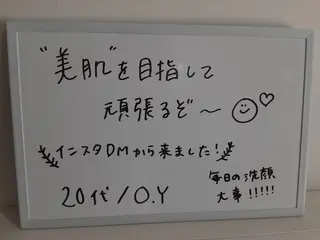 "美肌"を目指して
頑張るぞ〜
インスタDMから来ました!
20代/O.Y
毎日の洗顔
大事!!!!!